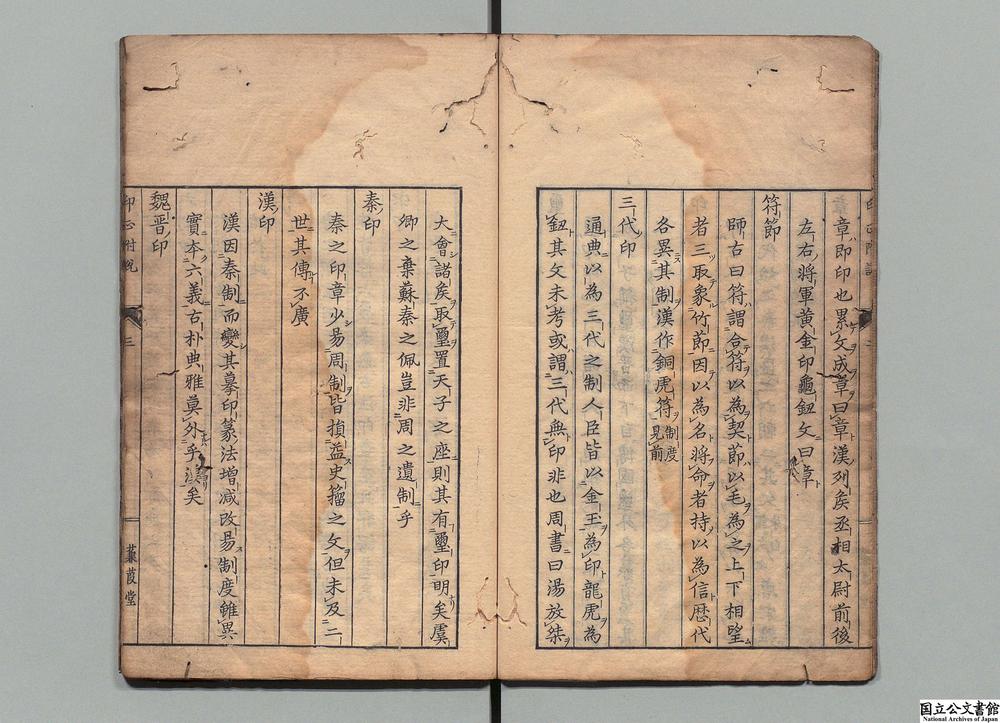 章即印也累文成章曰章漢列矦丞相太尉前後
左右將軍黄金印龜鈕文曰章
符節
師古曰符謂合符以為契節以毛為之上下相望
者三取象竹節因以為名將命者持以為信歴代
各異其制漢作銅虎符制度見前
三代印
通典以為三代之制人臣皆以金玉為印龍虎為
鈕其文未考或謂三代無印非也周書曰湯放桀
大會諸矦取璽置天子之座則其有璽印明矣虞
卿之棄蘇秦之佩豈非周之遺制乎
秦印
秦之印章少昜周制皆損益史籀之文但未及二
世其傳不廣
漢印
漢因秦制而變其摹印篆法增减改昜制度雖異
實本六義古朴典雅莫外乎漢矣
魏晋印
三
蒹葭堂
国立公文書館
National Archives of Japan